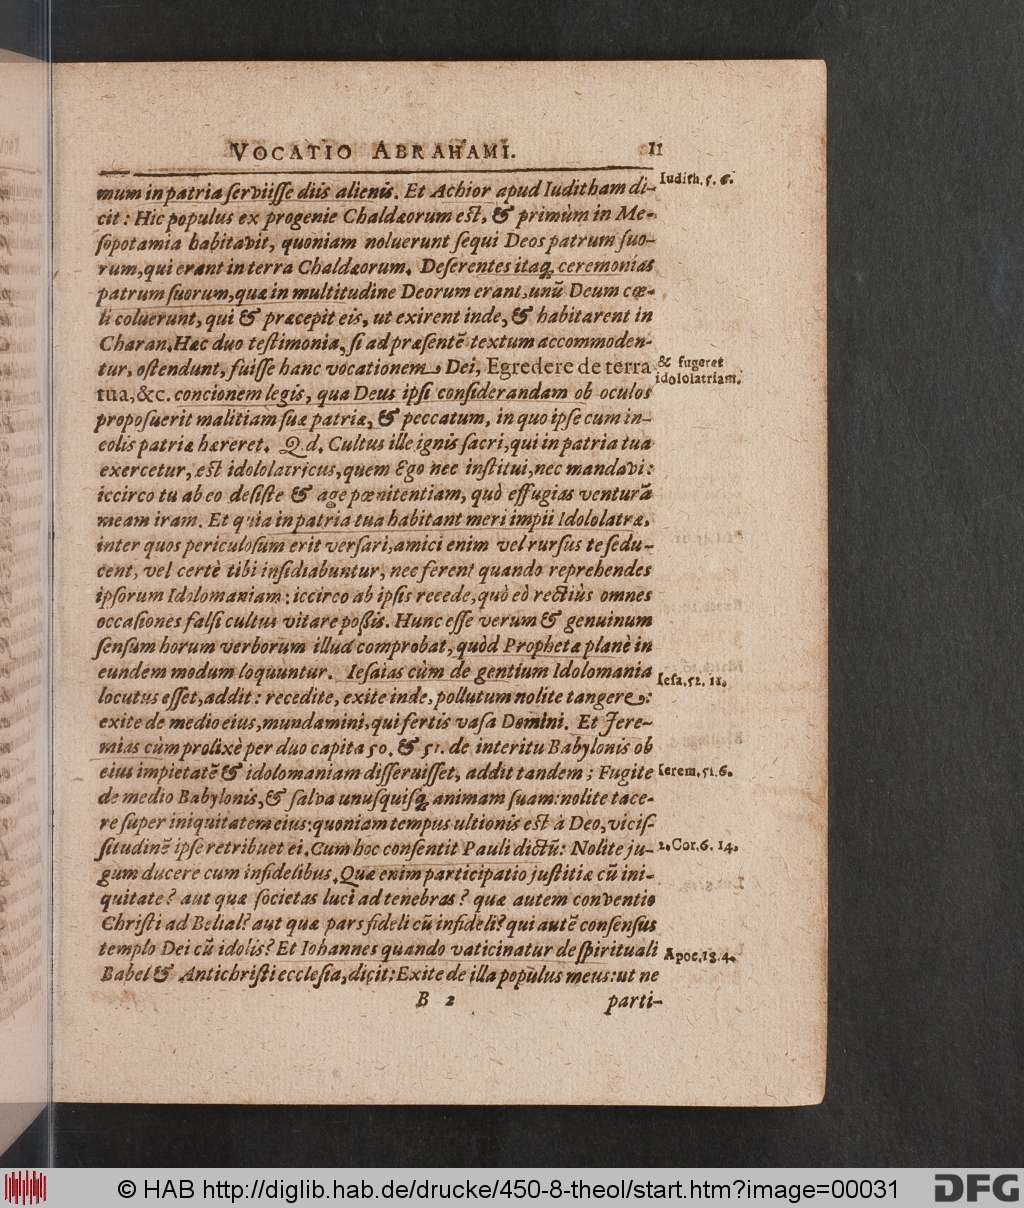 VOCATIO ABRAHAMI. 11
mum in patria ſerviiſſe diis alienis. Et Achior apud Iuditham di-
Iudith. 5. 6.
cit: Hic populus ex progenie Chaldæorum eſt, & primùm in Me-
ſopotamia habitavit, quoniam noluerunt ſequi Deos patrum ſuo-
rum, qui erant in terra Chaldæorum. Deſerentes itaq; ceremonias
patrum ſuorum, quæ in multitudine Deorum erant, unū Deum cœ-
li coluerunt, qui & præcepit eis, ut exirent inde, & habitarent in
Charan. Hæc duo teſtimonia, ſi ad præſentē textum accommoden-
tur, oſtendunt, fuiſſe hanc vocationem Dei, Egredere de terra
& fugeret
idololatriam.
tua, &c. concionem legis, qua Deus ipſi conſiderandam ob oculos
propoſuerit malitiam ſuæ patriæ, & peccatum, in quo ipſe cum in-
colis patriæ hæreret. Q. d. Cultus ille ignis ſacri, qui in patria tua
exercetur, eſt idololatricus, quem Ego nec inſtitui, nec mandavi:
iccirco tu ab eo deſiſte & age pœnitentiam, quò effugias venturā
meam iram. Et quia in patria tua habitant meri impii Idololatræ,
inter quos periculoſum erit verſari, amici enim vel rurſus te ſedu-
cent, vel certè tibi inſidiabuntur, nec ferent quando reprehendes
ipſorum Idolomaniam: iccirco ab ipſis recede, quò eò rectiùs omnes
occaſiones falſi cultus vitare poßis. Hunc eſſe verum & genuinum
ſenſum horum verborum illud comprobat, quòd Prophetæ planè in
eundem modum loquuntur. Ieſaias cùm de gentium Idolomania
Ieſa. 52. 11.
locutus eſſet, addit: recedite, exite inde, pollutum nolite tangere:
exite de medio eius, mundamini, qui fertis vaſa Domini. Et Jere-
mias cùm prolixè per duo capita 50. & 51. de interitu Babylonis ob
eius impietatē & idolomaniam diſſeruiſſet, addit tandem; Fugite
Ierem. 51. 6.
de medio Babylonis, & ſalva unuſquiſq; animam ſuam: nolite tace-
re ſuper iniquitatem eius: quoniam tempus ultionis eſt à Deo, viciſ-
ſitudinē ipſe retribuet ei. Cum hoc conſentit Pauli dictū: Nolite ju-
2. Cor. 6. 14.
gum ducere cum infidelibus. Quæ enim participatio juſtitiæ cū ini-
quitate? aut quæ ſocietas luci ad tenebras? quæ autem conventio
Chriſti ad Belial? aut quæ pars fideli cū infideli? qui autē conſenſus
templo Dei cū idolis? Et Iohannes quando vaticinatur de ſpirituali
Apoc. 18. 4.
Babel & Antichriſti eccleſia, dicit: Exite de illa populus meus: ut ne
B 2 parti-
© HAB http://diglib.hab.de/drucke/450-8-theol/start.htm?image=00031
DFG